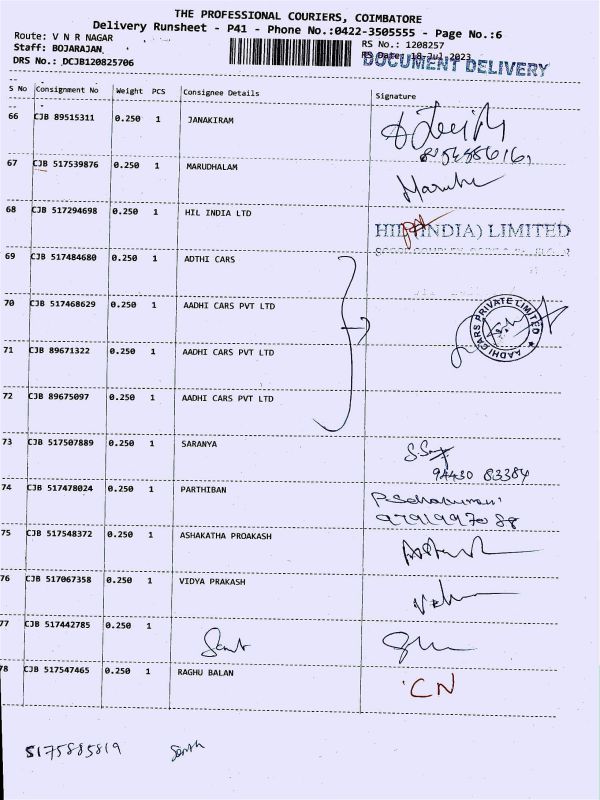 THE PROFESSIONAL COURIERS, COIMBATORE
Delivery Runsheet - P41 - Phone No.:0422-3505555 - Page No.:6
Route: V N R NAGAR
RS No.: 1208257
Staff: BOJARAJAN.
RS Date: 18-Jul-2023
DOCUMENT DELIVERY
DRS No.: DCJB120825706
S No Consignment No Weight PCS Consignee Details Signature
66 CJB 89515311 0.250 1 JANAKIRAM
67 CJB 517539876 0.250 1 MARUDHALAM
68 CJB 517294698 0.250 1 HIL INDIA LTD
HIL (INDIA) LIMITED
69 CJB 517484680 0.250 1 ADTHI CARS
70 CJB 517468629 0.250 1 AADHI CARS PVT LTD
AADHI CARS PRIVATE LIMITED
71 CJB 89671322 0.250 1 AADHI CARS PVT LTD
72 CJB 89675097 0.250 1 AADHI CARS PVT LTD
73 CJB 517507889 0.250 1 SARANYA
94430 83384
74 CJB 517478024 0.250 1 PARTHIBAN
9791997088
75 CJB 517548372 0.250 1 ASHAKATHA PROAKASH
76 CJB 517067358 0.250 1 VIDYA PRAKASH
77 CJB 517442785 0.250 1
78 CJB 517547465 0.250 1 RAGHU BALAN CN
5175885819